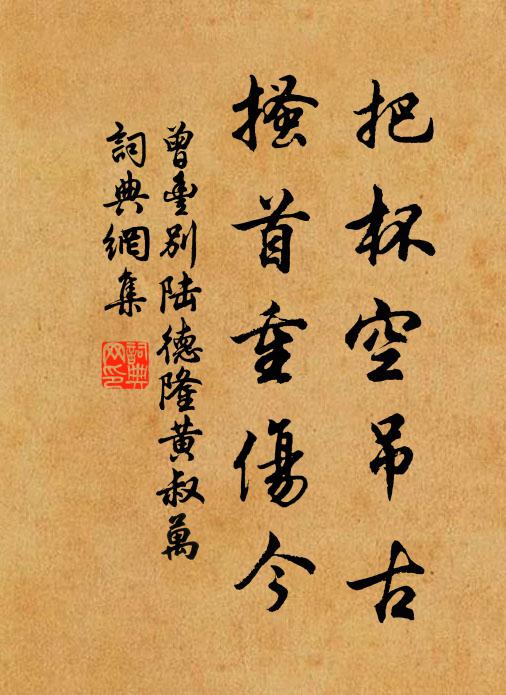 把杯空吊古
搔首重傷今
曾豊別陸德隆黄叔萬
詞典網集
詞典网印